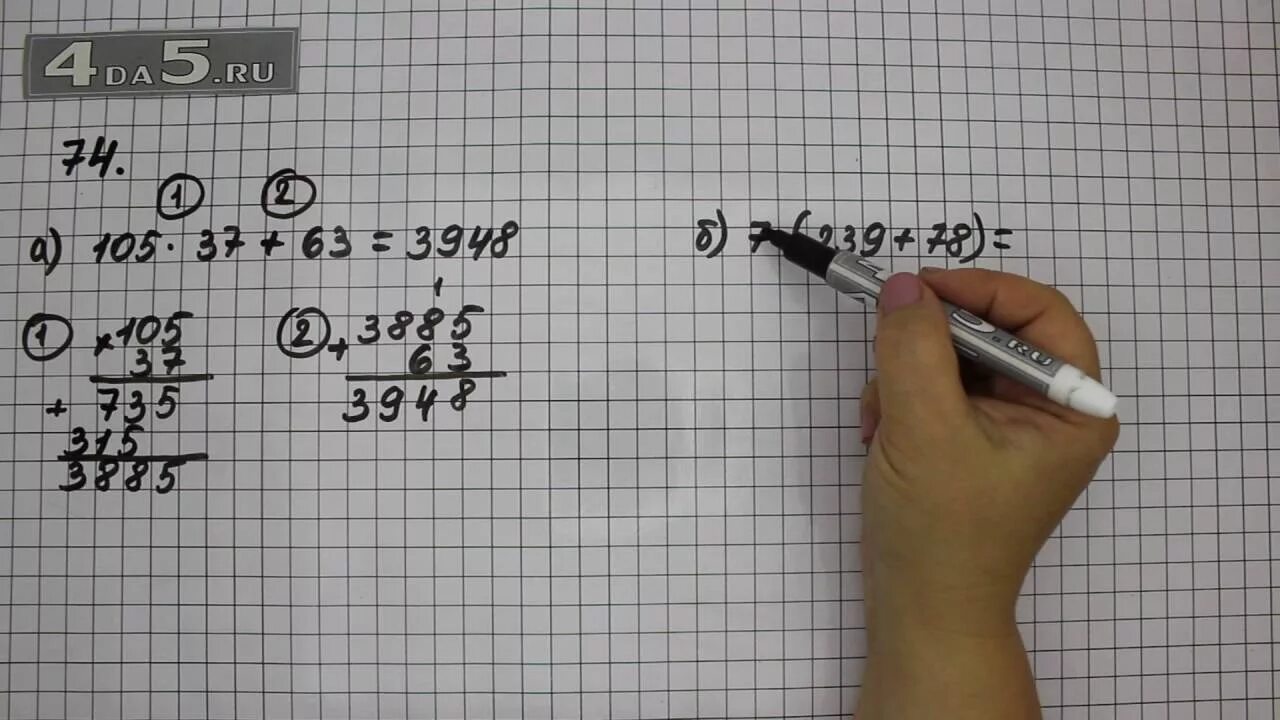 4DA5.RU
74.
1 2
а) 105 · 37 + 63 = 3948
б) 7 (239 + 78) =
1 × 105
37
+ 735
315
3885
1
2 + 3885
63
3948
.RU